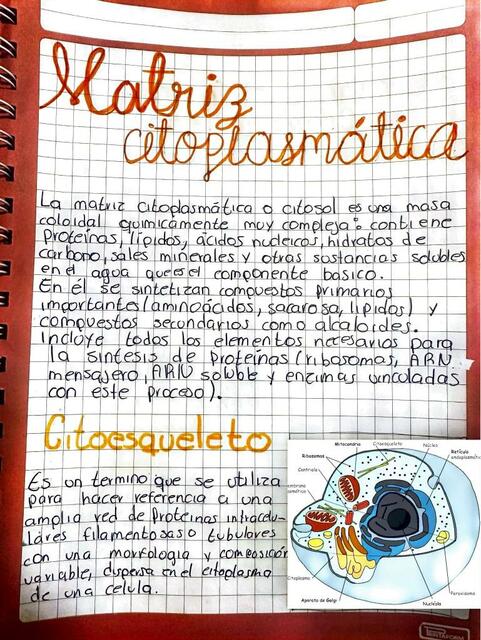 Matriz
citoplasmática
La matriz citoplasmática o citosol es una masa
coloidal quimicamente muy compleja: contiene
Proteínas, lípidos, ácidos nucleicos, hidratos de
carbono, sales minerales y otras sustancias solubles
en el agua que es el componente basico.
En él se sintetizan compuestos primarios
importantes (aminoácidos, sacarosa, lípidos) y
compuestos secundarios como alcaloides.
Incluye todos los elementos necesarios para
la sintesis de proteínas (ribosomas, ARN
mensajero, ARN soluble y enzimas vinculadas
con este proceso).
Citoesqueleto
Es un termino que se utiliza
para hacer referencia a una
amplia red de Proteinas intracelu-
lares filamentosas o tubulares
con una morfologia y composición
variable, dispersa en el citoplasma
de una celula.
Mitocondria
Citoesqueleto
Núcleo
Ribosomas
Retículo
endoplasmático
Centriolo
Citoplasma
Aparato de Golgi
Nucléolo
Peroxisoma